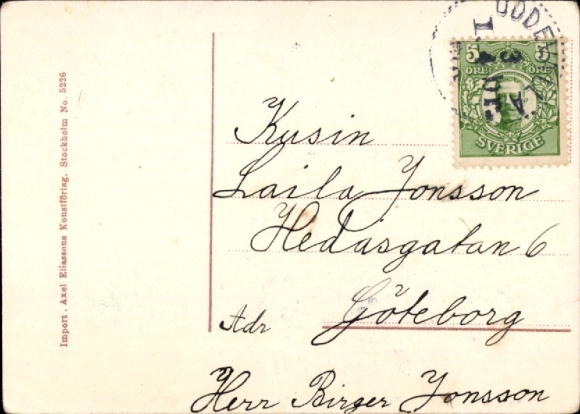 Import. Axel Eliassons Konstförlag. Stockholm No. 5226
UDDEVALLA
5 5
ÖRE ÖRE
SVERIGE
Kusin
Laila Jonsson
Hedasgatan 6
Göteborg
Adr
Herr Birger Jonsson